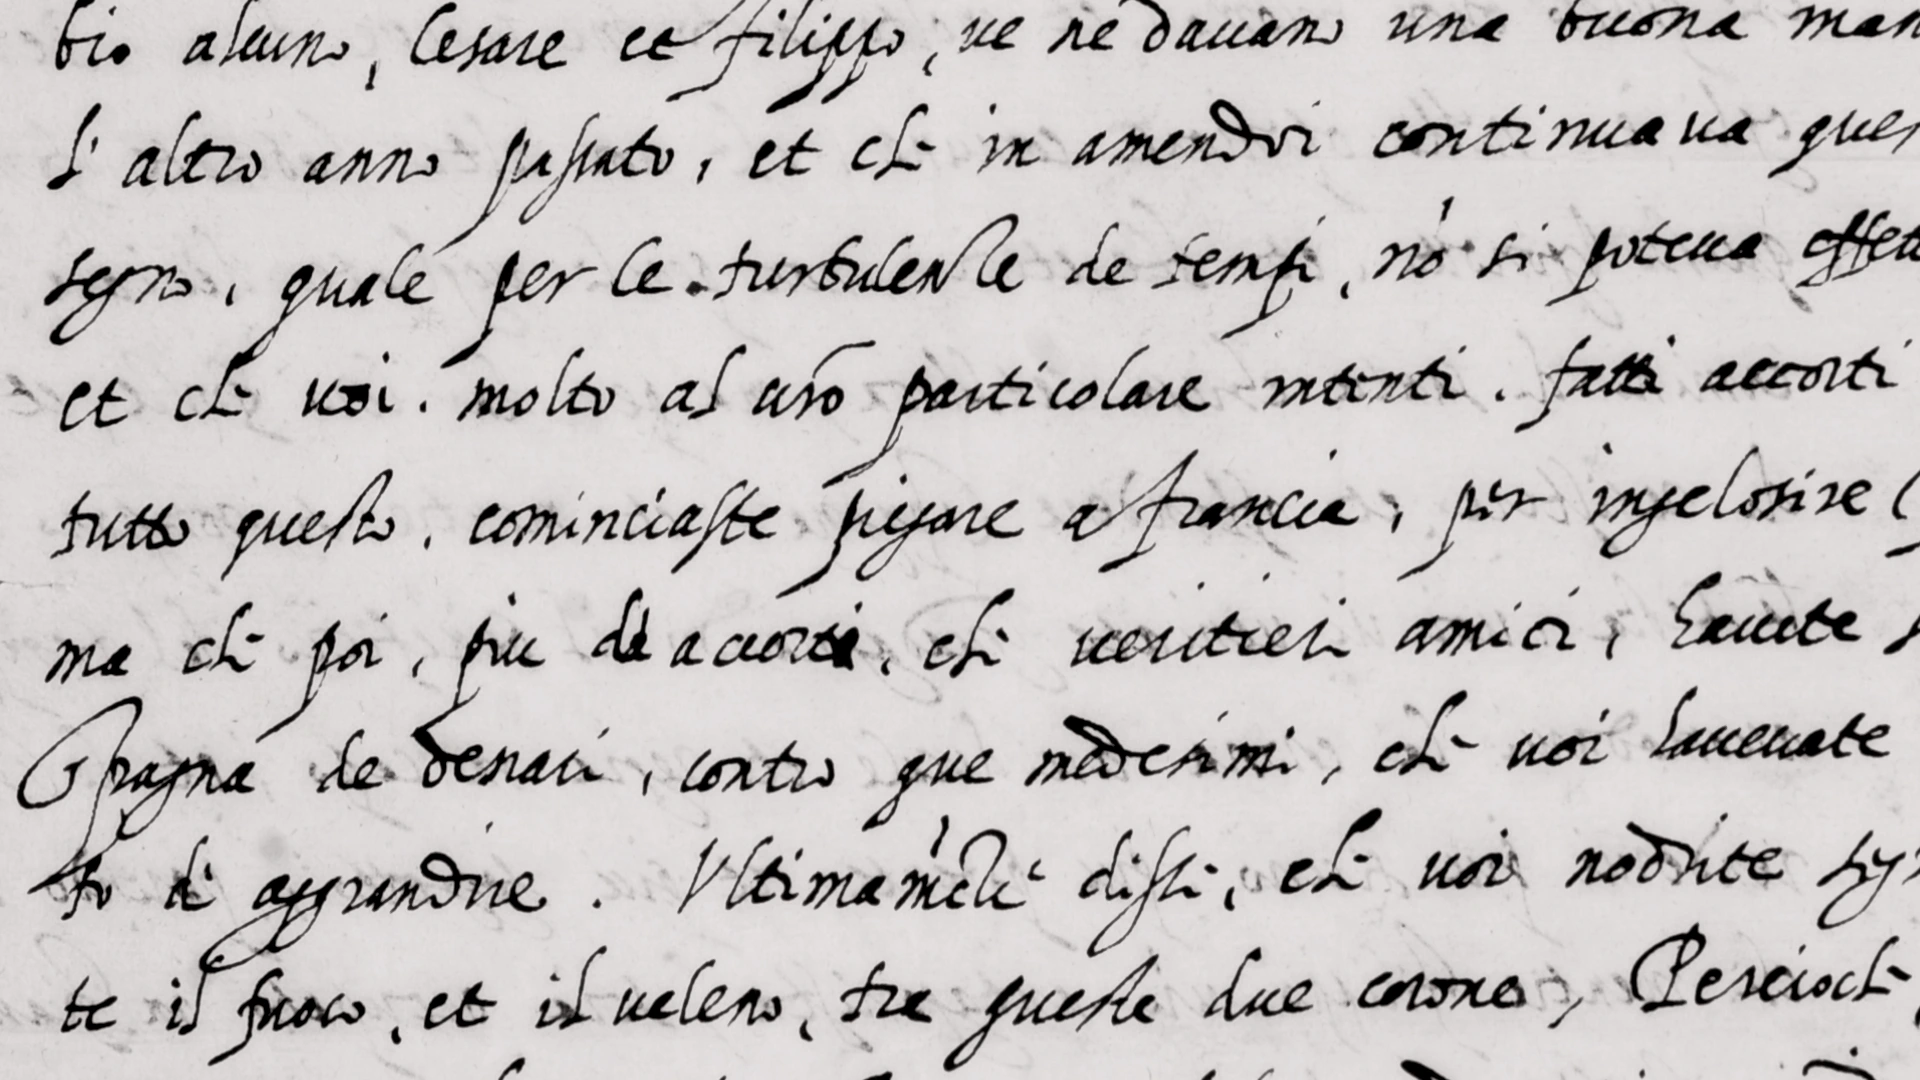 bio alcuno, Cesare et filippo, ve ne davano una buona man
l'altro anno passato, et ch in amendoi continuava ques
segno, quale per le turbulenze de tempi, nō si poteva effet
et ch voi. molto al vrō particolare intenti. fatti accorti
tutto questo. cominciaste piegare a francia, per ingelosire
ma ch poi, piu accorti, ch veritieri amici, havete
Spagna de denari, contro que medesimi, ch voi havevate
to di aggrandire. Ultimamēte dissi, ch voi nodrite
te il fuoco, et il veleno, tra queste due corone, Percioch